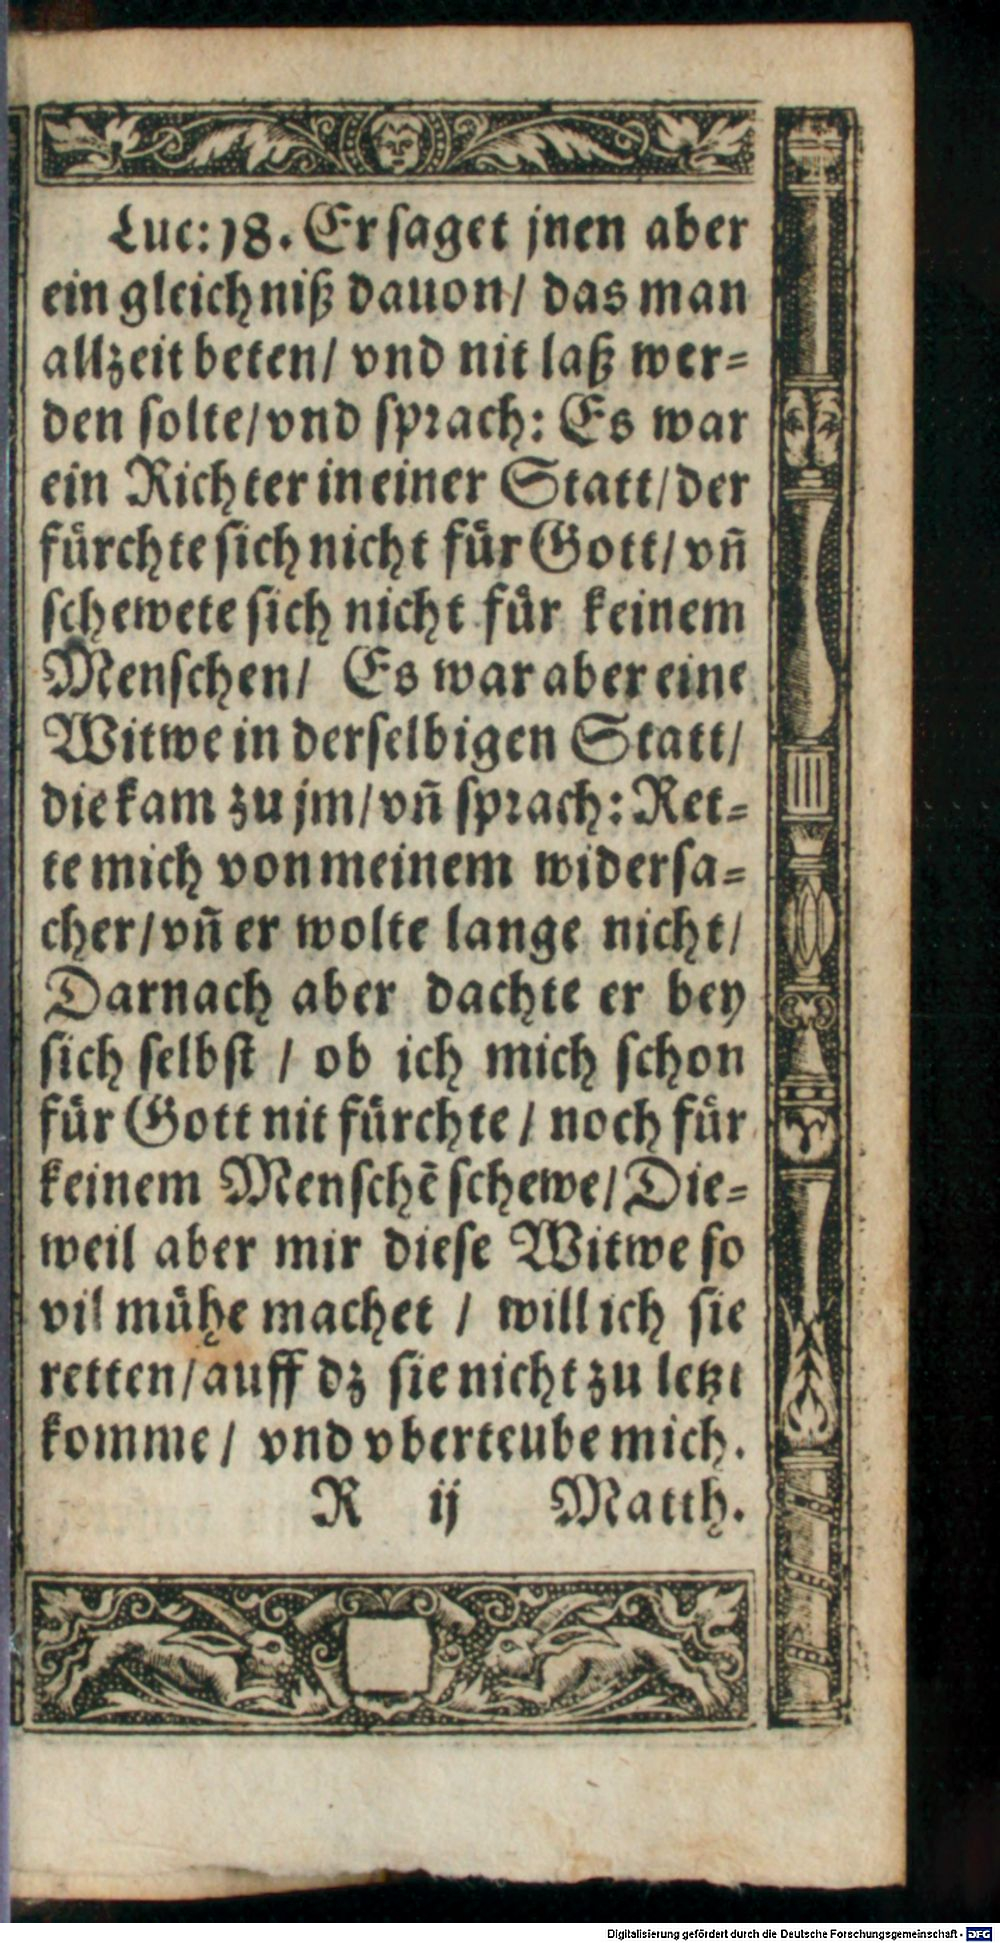 Luc: 18. Er saget jnen aber
ein gleichniß dauon/ das man
allzeit beten/ vnd nit laß wer=
den solte/vnd sprach: Es war
ein Richter in einer Statt/der
fuͤrchte sich nicht fuͤr Gott/ vn̄
schewete sich nicht fuͤr keinem
Menschen/ Es war aber eine
Witwe in derselbigen Statt/
die kam zu jm/vn̄ sprach: Ret=
te mich von meinem widersa=
cher/vn̄ er wolte lange nicht/
Darnach aber dachte er bey
sich selbst / ob ich mich schon
fuͤr Gott nit fuͤrchte / noch fuͤr
keinem Menschē schewe/Die=
weil aber mir diese Witwe so
vil muͤhe machet / will ich sie
retten/auff dz sie nicht zu letzt
komme/ vnd vberteube mich.
R ij Matth.
Digitalisierung gefördert durch die Deutsche Forschungsgemeinschaft - DFG